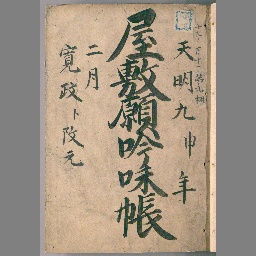 天明九申年
屋敷願吟味帳
二月
寛政ト改元